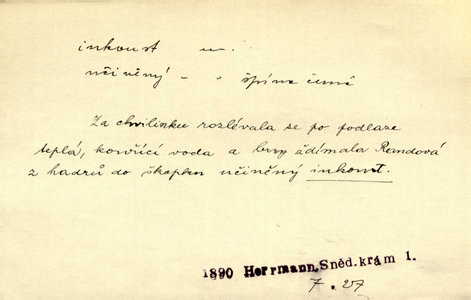 inkoust m.
učiněný - - špína černá
Za chvilinku rozlévala se po podlaze
teplá, kouřící voda a brzy ždímala Randová
z hadrů do škopku učiněný inkoust.
1890 Herrmann, Sněd. krám 1.
7. 27